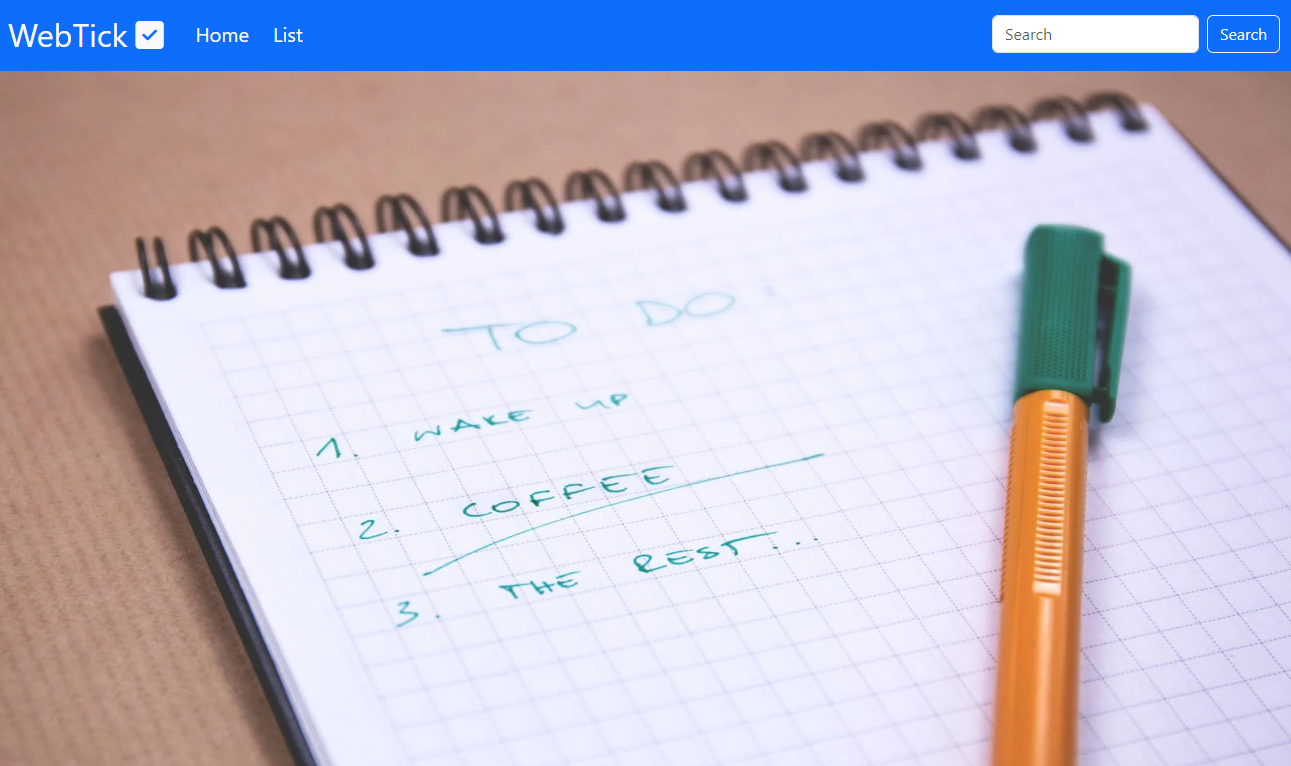 WebTick Home List Search Search
TO DO
1. WAKE UP
2. COFFEE
3. THE REST...